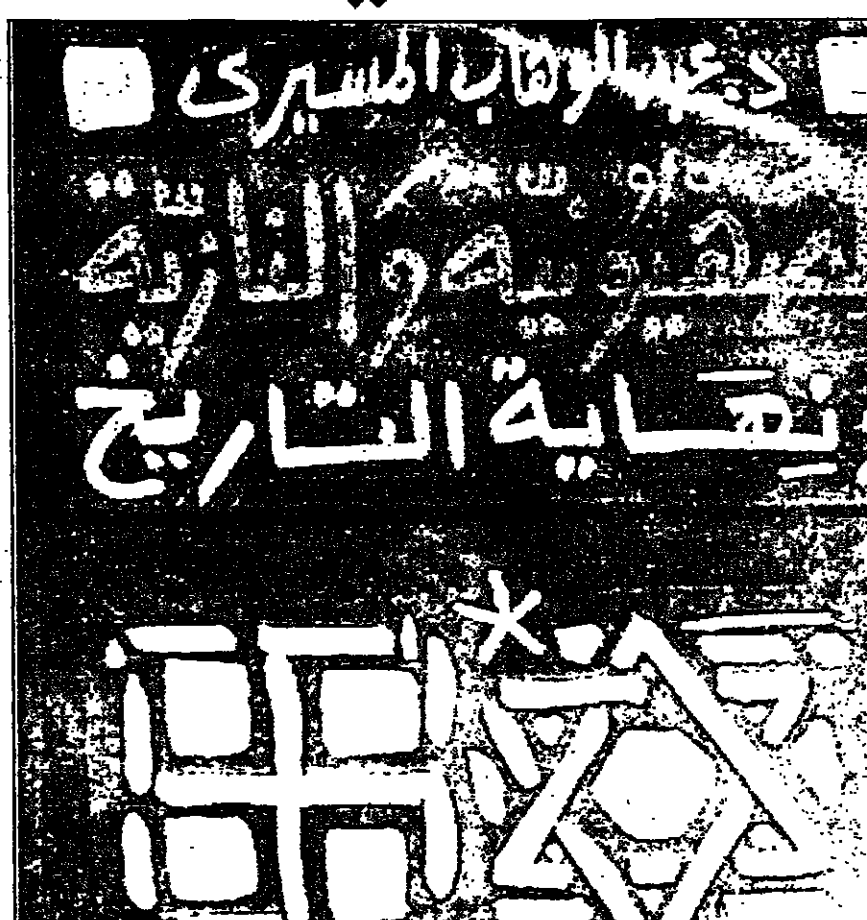 د. عبد الوهاب المسيرى
الصهيونية والنازية
و
نهاية التاريخ